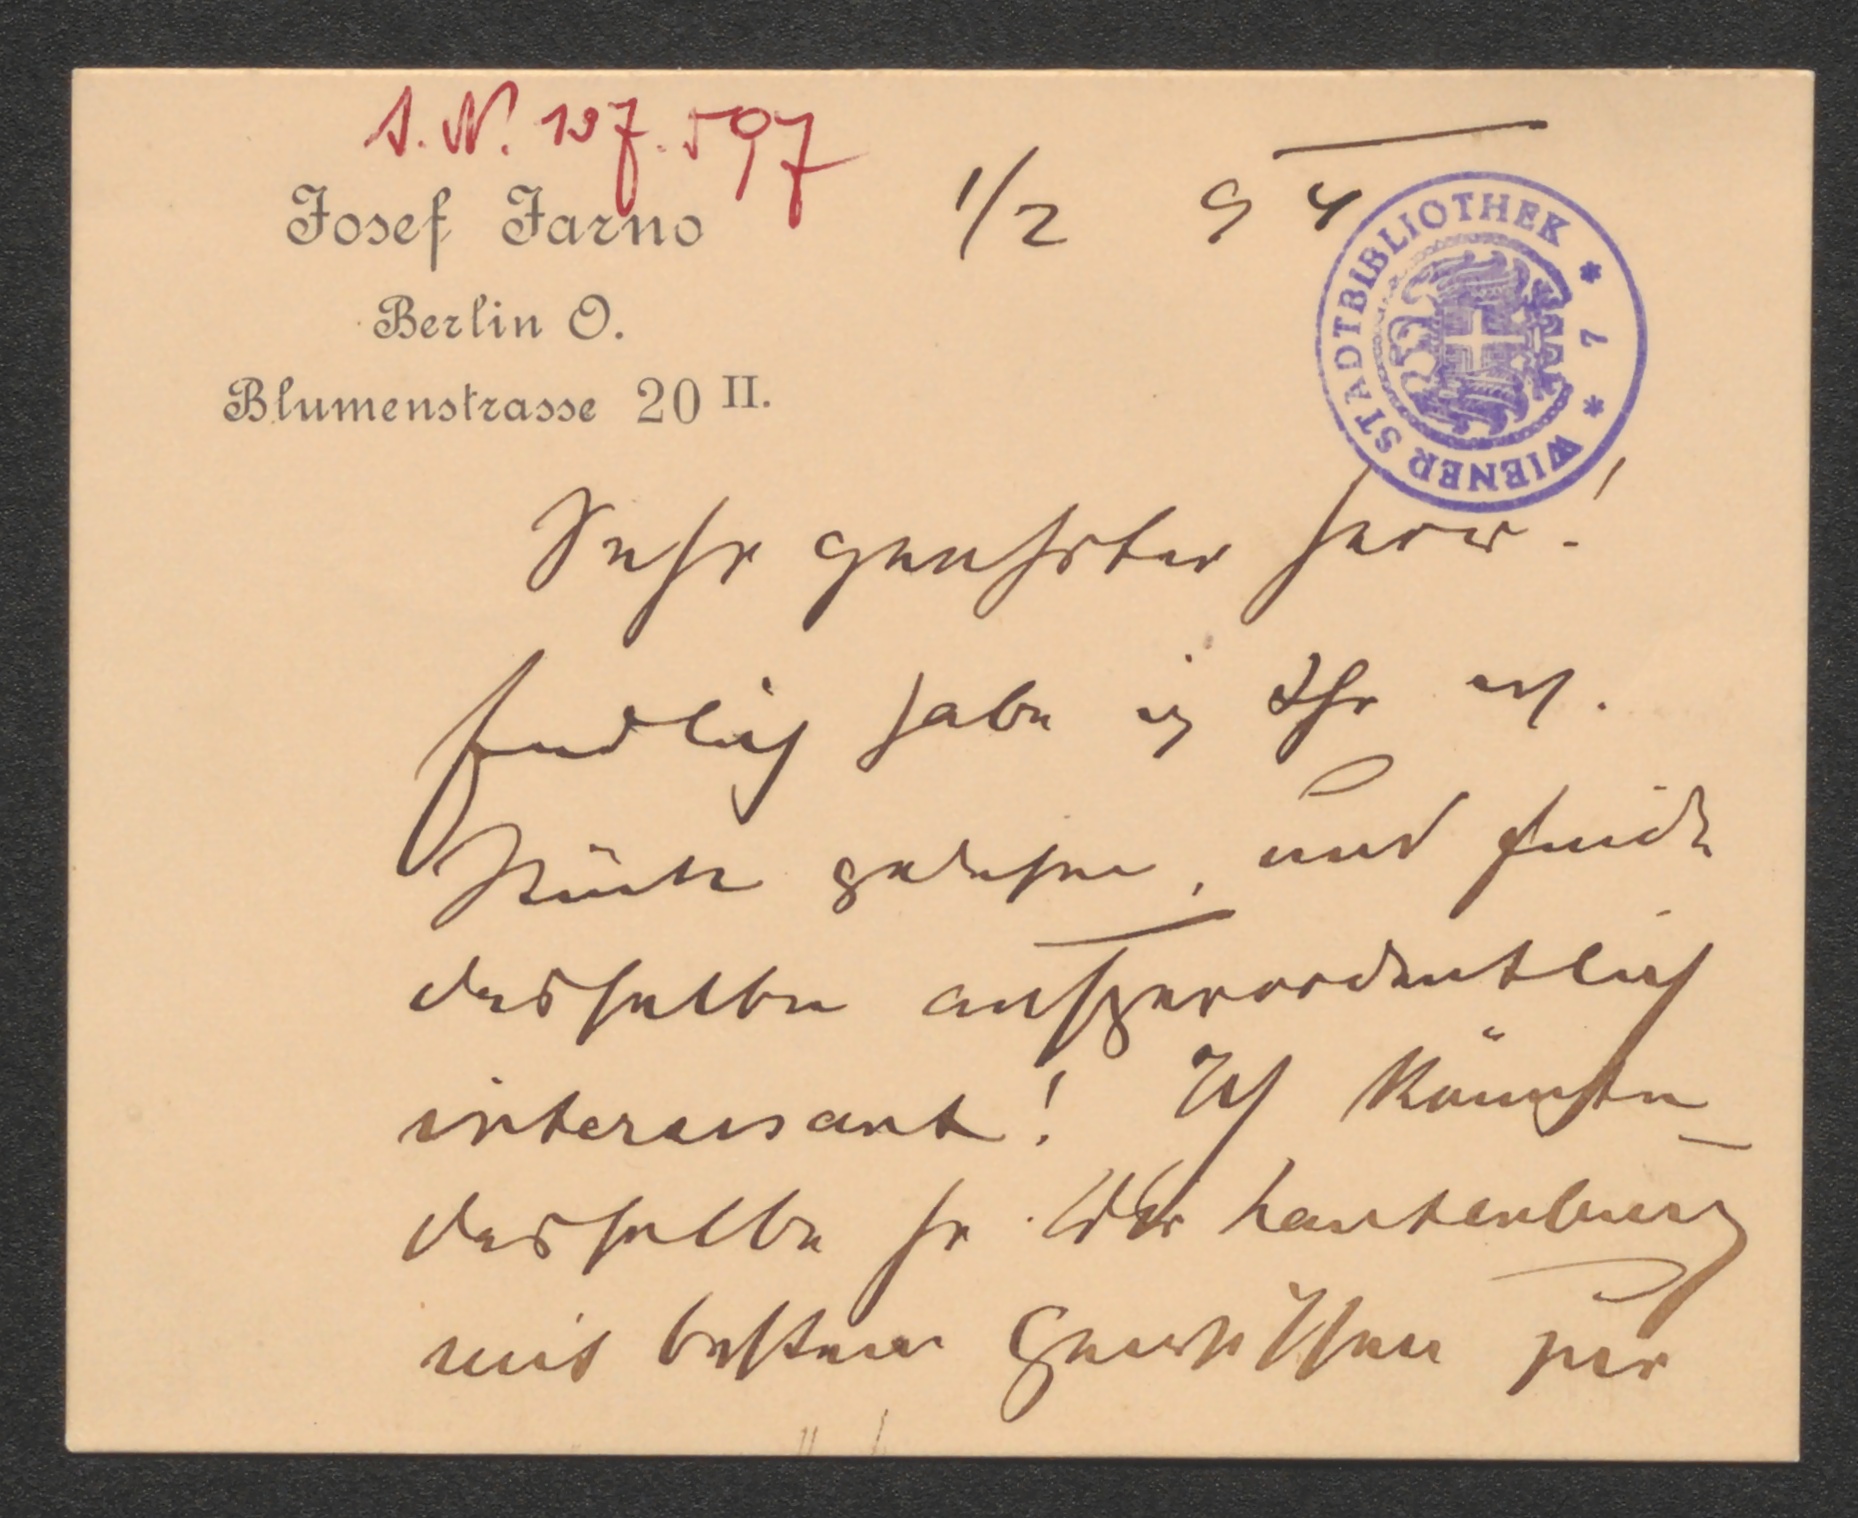 I.N. 137.597
Josef Jarno
Berlin O.
Blumenstrasse 20 II.
1/2 94
WIENER STADTBIBLIOTHEK * 7 *
Sehr geehrter Herr!
Endlich habe ich Ihr
Stück gelesen, und finde
dasselbe außerordentlich
interessant! Ich könnte
dasselbe Lautenburg
mit bestem Gewissen zur